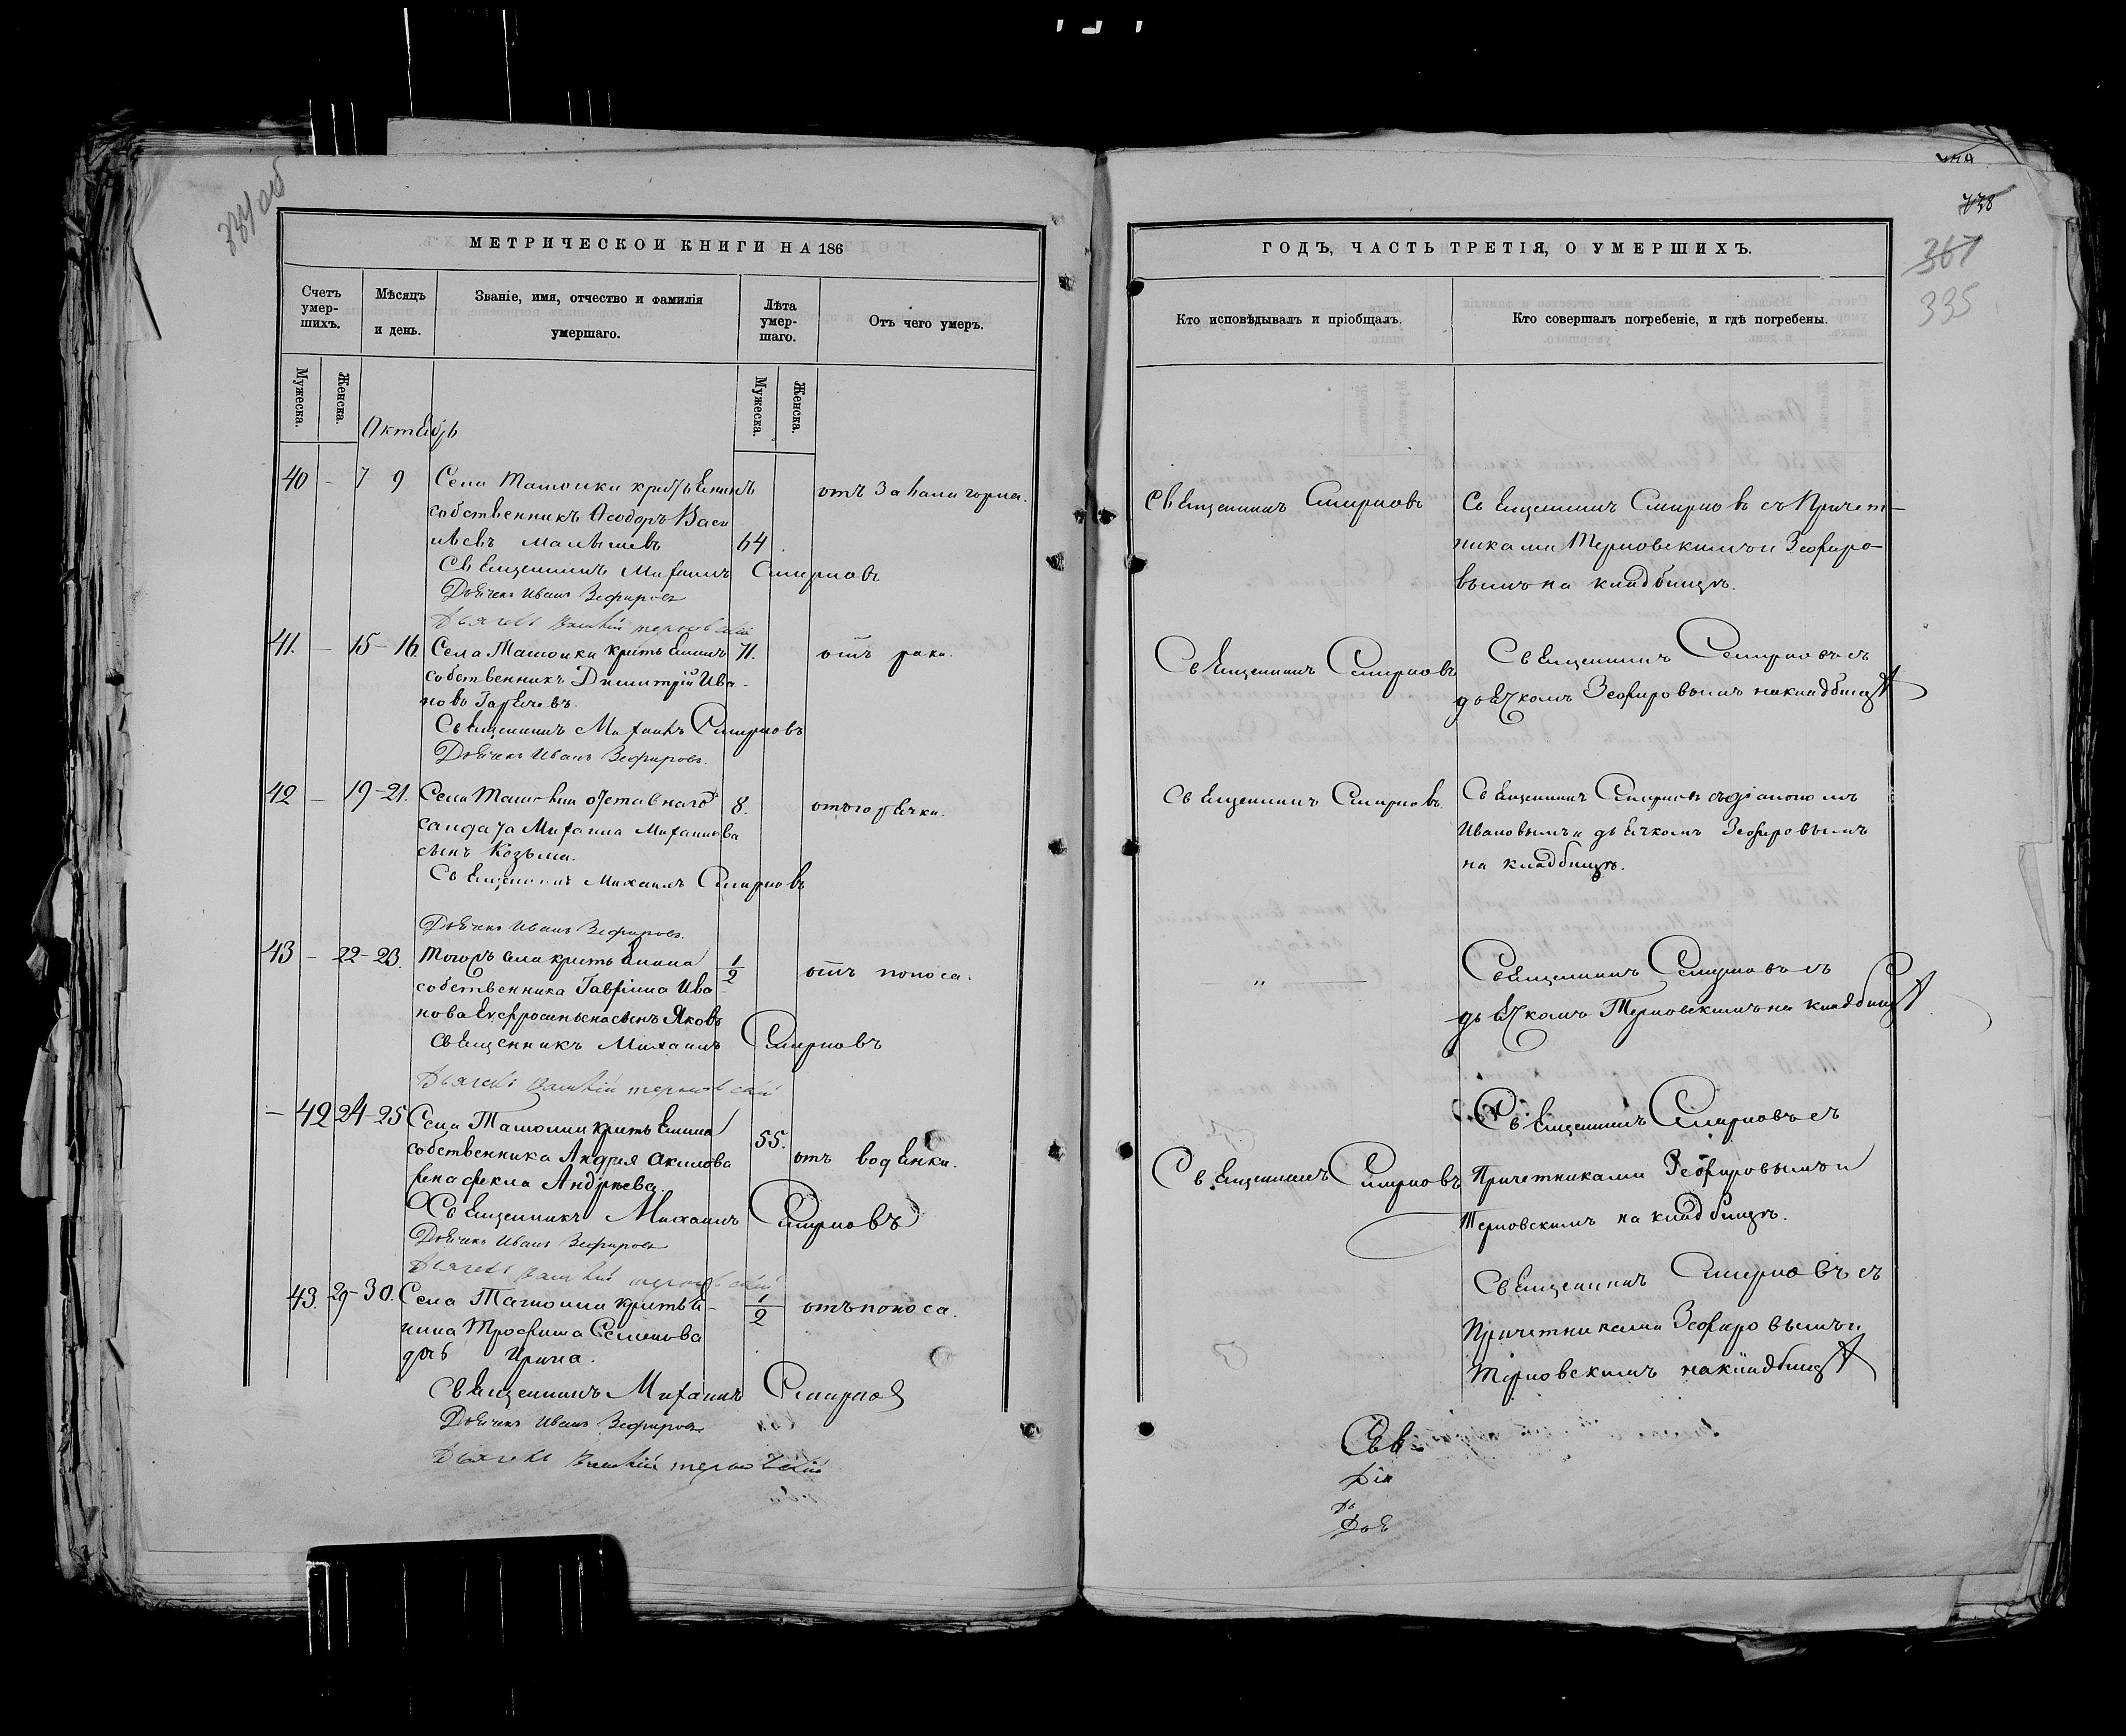 334 об
МЕТРИЧЕСКОЙ КНИГИ НА 186
Счетъ умер-шихъ.
Мѣсяцъ и день.
Званіе, имя, отчество и фамилія умершаго.
Лѣта умер-шаго.
Отъ чего умеръ.
Мужеска.
Женска.
Мужеска.
Женска.
Октябрь
40 - 7 9 Села Ташолки крестьянинъ
собственникъ Ѳеодоръ Васи
льевъ Малышевъ 64
отъ завала горла.
Священникъ Михаилъ Смирновъ
Дьячекъ Иванъ Зефировъ
Дьячекъ Терновскій
41. - 15-16. Села Ташолки крестьянинъ 71. отъ рака.
собственникъ Димитрій Ива-
новъ
Священникъ Михаилъ Смирновъ
Дьячекъ Иванъ Зефировъ.
42 - 19-21. Села Ташолки отставнаго 8. отъ горячки.
солдата Михаила Михаилова
сынъ Козьма.
Священникъ Михаилъ Смирновъ
Дьячекъ Иванъ Зефировъ.
43 - 22-23. Тогожъ села крестьянина 1/2 отъ поноса.
собственника Гавріила Ива
нова сынъ Яковъ
Священникъ Михаилъ Смирновъ
Дьячекъ Терновскій
- 42 24-25 Села Ташолки крестьянина 55.
собственника Андрея Акилова отъ водянки.
жена Фекла Андреева.
Священникъ Михаилъ Смирновъ
Дьячекъ Иванъ Зефировъ
Дьячекъ Терновскій
43. 29-30. Села Ташолки крестья- 1/2 отъ поноса.
нина Трофима Семенова
дочь Ирина.
Священникъ Михаилъ Смирновъ
Дьячекъ Иванъ Зефировъ
Дьячекъ Терновскій
738
367
335
ГОДЪ, ЧАСТЬ ТРЕТІЯ, О УМЕРШИХЪ.
Кто исповѣдывалъ и пріобщалъ.
Кто совершалъ погребеніе, и гдѣ погребены.
Священникъ Смирновъ
Священникъ Смирновъ съ Причет-
никами Терновскимъ и Зефиро-
вымъ на кладбищѣ.
Священникъ Смирновъ
Священникъ Смирновъ съ
дьячкомъ Зефировымъ на кладбищѣ
Священникъ Смирновъ
Священникъ Смирновъ съ діакономъ
Ивановымъ и дьячкомъ Зефировымъ
на кладбищѣ.
"
Священникъ Смирновъ съ
дьячкомъ Терновскимъ на кладбищѣ
Священникъ Смирновъ
Священникъ Смирновъ съ
Причетниками Зефировымъ и
Терновскимъ на кладбищѣ.
Священникъ Смирновъ съ
Причетниками Зефировымъ и
Терновскимъ на кладбищѣ
Свя-
Діа
Дь
Дья